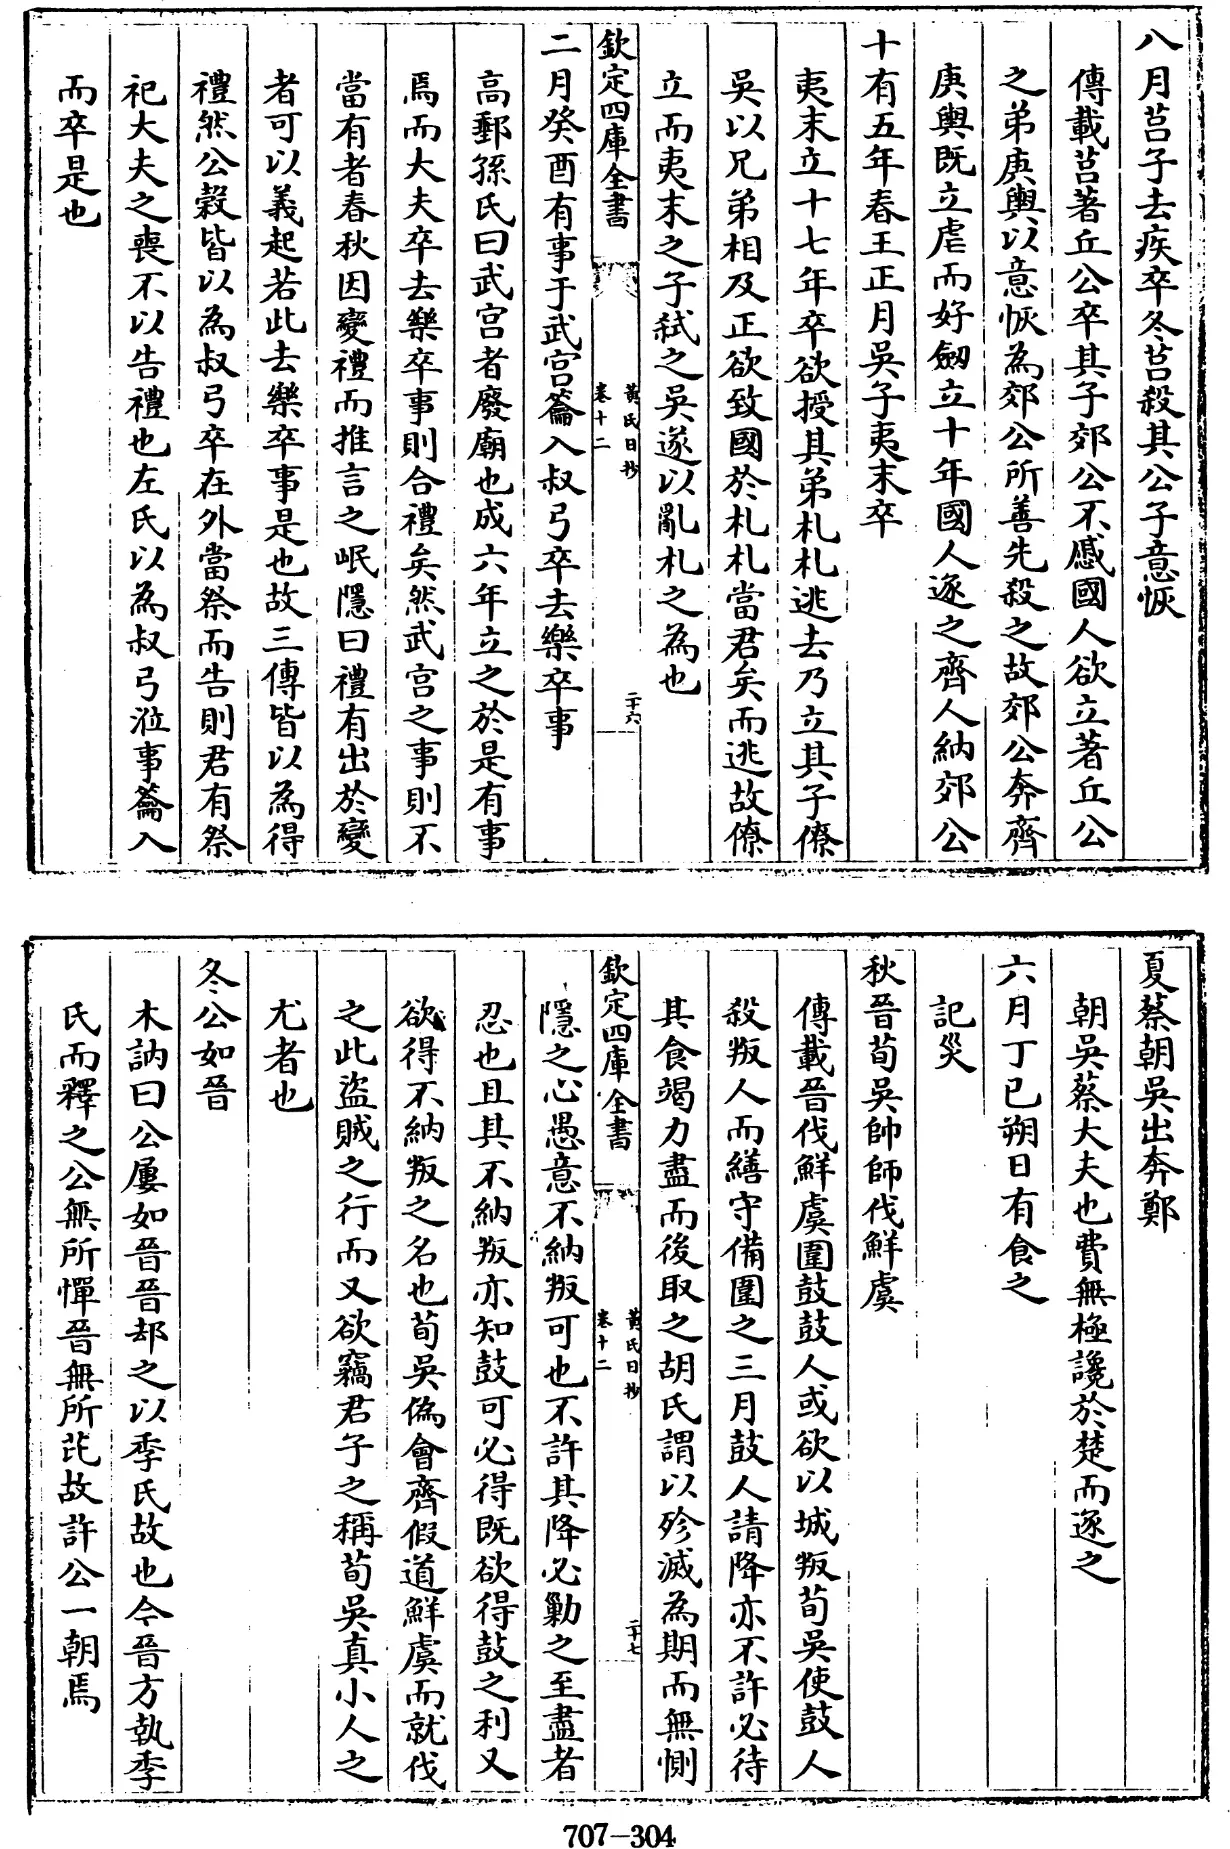 八月莒子去疾卒冬莒殺其公子意恢
傳載莒著丘公卒其子郊公不慼國人欲立著丘公
之弟庚輿以意恢為郊公所善先殺之故郊公奔齊
庚輿既立虐而好劒立十年國人逐之齊人納郊公
十有五年春王正月吳子夷末卒
夷末立十七年卒欲授其弟札札逃去乃立其子僚
吳以兄弟相及正欲致國於札札當君矣而逃故僚
立而夷末之子弒之吳遂以亂札之為也
欽定四庫全書
黃氏日抄
卷十二
二十六
二月癸酉有事于武宮籥入叔弓卒去樂卒事
高郵孫氏曰武宮者廢廟也成六年立之於是有事
焉而大夫卒去樂卒事則合禮矣然武宮之事則不
當有者春秋因變禮而推言之岷隱曰禮有出於變
者可以義起若此去樂卒事是也故三傳皆以為得
禮然公穀皆以為叔弓卒在外當祭而告則君有祭
祀大夫之喪不以告禮也左氏以為叔弓涖事籥入
而卒是也
夏蔡朝吳出奔鄭
朝吳蔡大夫也費無極讒於楚而逐之
六月丁巳朔日有食之
記災
秋晉荀吳帥師伐鮮虞
傳載晉伐鮮虞圍鼓鼓人或欲以城叛荀吳使鼓人
殺叛人而繕守備圍之三月鼓人請降亦不許必待
其食竭力盡而後取之胡氏謂以殄滅為期而無惻
欽定四庫全書
黃氏日抄
卷十二
二十七
隱之心愚意不納叛可也不許其降必勦之至盡者
忍也且其不納叛亦知鼓可必得既欲得鼓之利又
欲得不納叛之名也荀吳偽會齊假道鮮虞而就伐
之此盜賊之行而又欲竊君子之稱荀吳真小人之
尤者也
冬公如晉
木訥曰公屢如晉晉却之以季氏故也今晉方執季
氏而釋之公無所憚晉無所芘故許公一朝焉
707-304